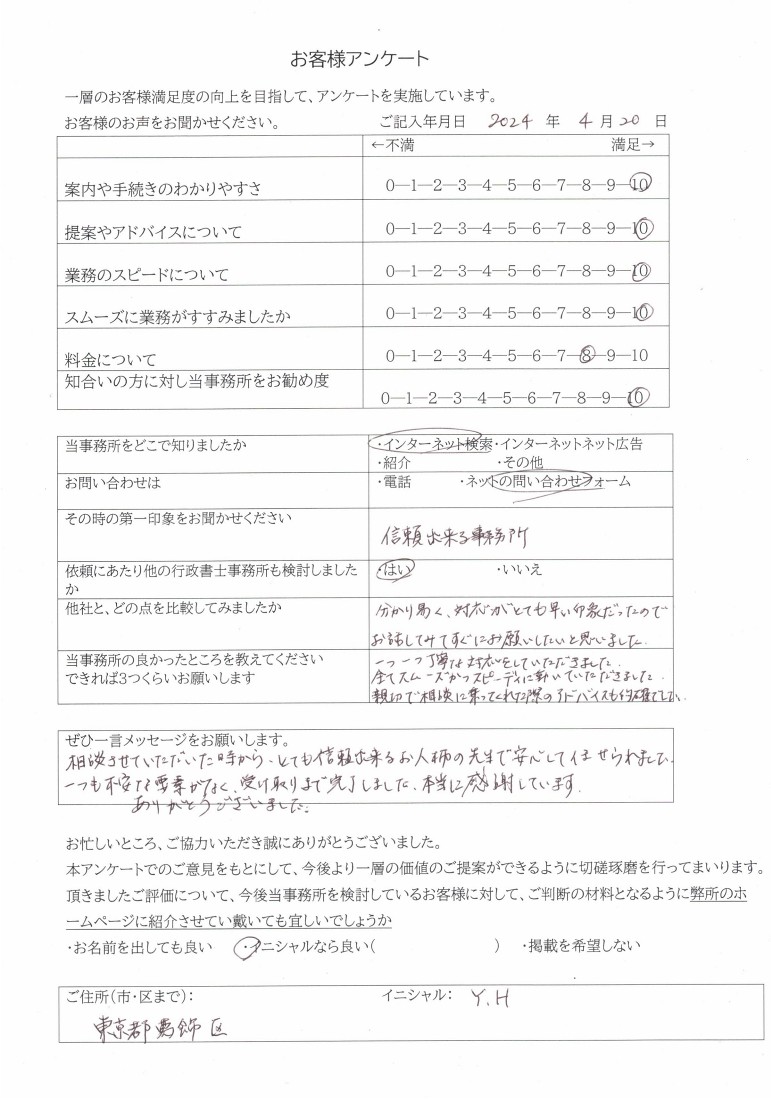 お客様アンケート
一層のお客様満足度の向上を目指して、アンケートを実施しています。
お客様のお声をお聞かせください。 ご記入年月日 2024 年 4 月 20 日
←不満 満足→
案内や手続きのわかりやすさ 0―1―2―3―4―5―6―7―8―9―10
提案やアドバイスについて 0―1―2―3―4―5―6―7―8―9―10
業務のスピードについて 0―1―2―3―4―5―6―7―8―9―10
スムーズに業務がすすみましたか 0―1―2―3―4―5―6―7―8―9―10
料金について 0―1―2―3―4―5―6―7―8―9―10
知合いの方に対し当事務所をお勧め度 0―1―2―3―4―5―6―7―8―9―10
当事務所をどこで知りましたか ・インターネット検索・インターネットネット広告
・紹介 ・その他
お問い合わせは ・電話 ・ネットの問い合わせフォーム
その時の第一印象をお聞かせください
信頼出来る事務所
依頼にあたり他の行政書士事務所も検討しました ・はい ・いいえ
か
他社と、どの点を比較してみましたか 分かり易く、対応がとても早い印象だったので
お話してみてすぐにお願いしたいと思いました.
当事務所の良かったところを教えてください 一つ一つ丁寧な対応をしていただきました.
できれば3つくらいお願いします 全てスムーズかつスピーディに動いていただきました.
親切で相談に乗ってくれた際のアドバイスも的確でした.
ぜひ一言メッセージをお願いします。
相談させていただいた時から、とても信頼出来るお人柄の先生で安心してイませられました.
一つも不安な要素がなく、受け取りまで完了しました. 本当に感謝しています.
ありがとうございました.
お忙しいところ、ご協力いただき誠にありがとうございました。
本アンケートでのご意見をもとにして、今後より一層の価値のご提案ができるように切磋琢磨を行ってまいります。
頂きましたご評価について、今後当事務所を検討しているお客様に対して、ご判断の材料となるように弊所のホ
ームページに紹介させてい戴いても宜しいでしょうか
・お名前を出しても良い ・イニシャルなら良い( ) ・掲載を希望しない
ご住所(市・区まで): イニシャル: Y.H
東京都葛飾区